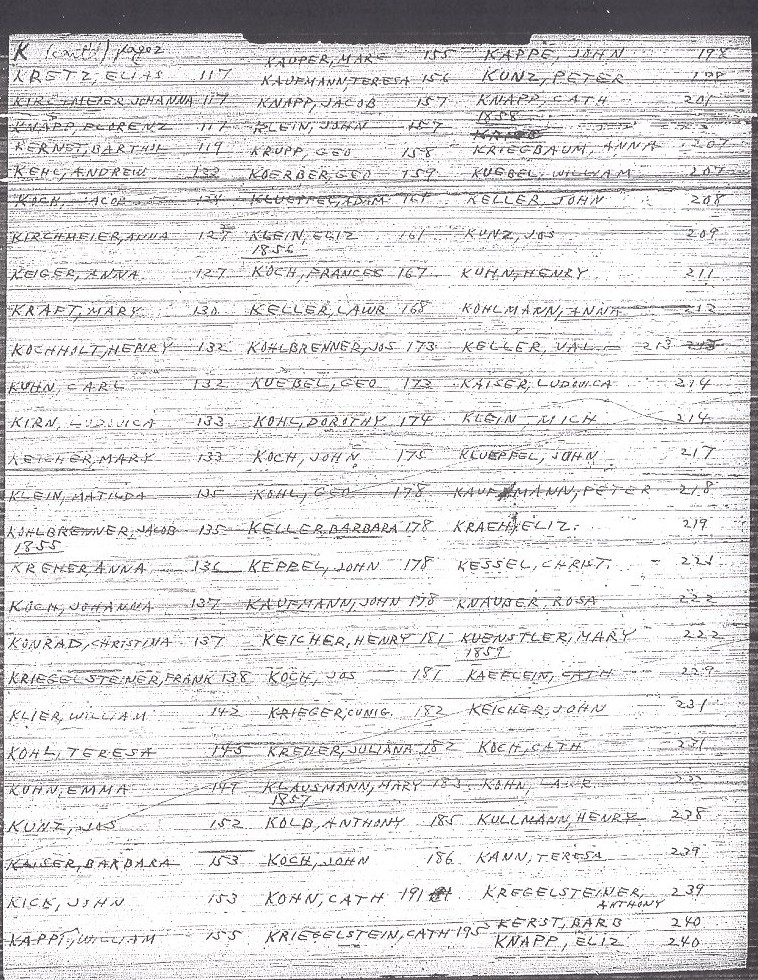 K (cont.) page 2
KRETZ, ELIAS 117
KIRCHMEIER, JOHANNA 117
KNAPP, FLORENZ 117
KERNET, BARTHOL 119
KEHL, ANDREW 132
KOCH, JACOB 124
KIRCHMEIER, ANNA 127
KEIGER, ANNA 127
KRAFT, MARY 130
KOCHHOLT, HENRY 132
KUHN, CARL 132
KIRN, LUDOVICA 133
KEICHER, MARY 133
KLEIN, MATILDA 135
KOHLBRENNER, JACOB 135
1855
KREHER, ANNA 136
KOCH, JOHANNA 137
KONRAD, CHRISTINA 137
KRIEGELSTEINER, FRANK 138
KLIER, WILLIAM 142
KOHL, TERESA 145
KUHN, EMMA 149
KUNZ, JOS 152
KAISER, BARBARA 153
KICK, JOHN 153
KAPPE, WILLIAM 155
KAUPER, MARG 155
KAUFMANN, TERESA 156
KNAPP, JACOB 157
KLEIN, JOHN 157
KRUPP, GEO 158
KOERBER, GEO 159
KLUEPFEL, ADAM 161
KLEIN, ELIZ 161
1856
KOCH, FRANCES 167
KELLER, LAWR 168
KOHLBRENNER, JOS 173
KUEBEL, GEO 173
KOHL, DOROTHY 174
KOCH, JOHN 175
KOHL, GEO 178
KELLER, BARBARA 178
KEPPEL, JOHN 178
KAUFMANN, JOHN 178
KEICHER, HENRY 181
KOCH, JOS 181
KRIEGER, CUNIG. 182
KREHER, JULIANA 182
KLAUSMANN, MARY 183
1857
KOLB, ANTHONY 185
KOCH, JOHN 186
KOHN, CATH 191
KRIEGELSTEIN, CATH 195
KAPPE, JOHN 198
KUNZ, PETER 198
KNAPP, CATH 201
1858
KRIEGBAUM, ANNA 207
KUEBEL, WILLIAM 207
KELLER, JOHN 208
KUNZ, JOS 209
KUHN, HENRY 211
KOHLMANN, ANNA 212
KELLER, VAL 213
KAISER, LUDOVICA 214
KLEIN, MICH 214
KLUEPFEL, JOHN 217
KAUFMANN, PETER 218
KRAEH, ELIZ. 219
KESSEL, CHRIST. 221
KNAUBER, ROSA 222
KUENSTLER, MARY 222
1859
KAEFLEIN, CATH 229
KEICHER, JOHN 231
KOCH, CATH 231
KOHN,
KULLMANN, HENRY 238
KANN, TERESA 239
KREGELSTEINER, ANTHONY 239
KERST, BARB 240
KNAPP, ELIZ 240